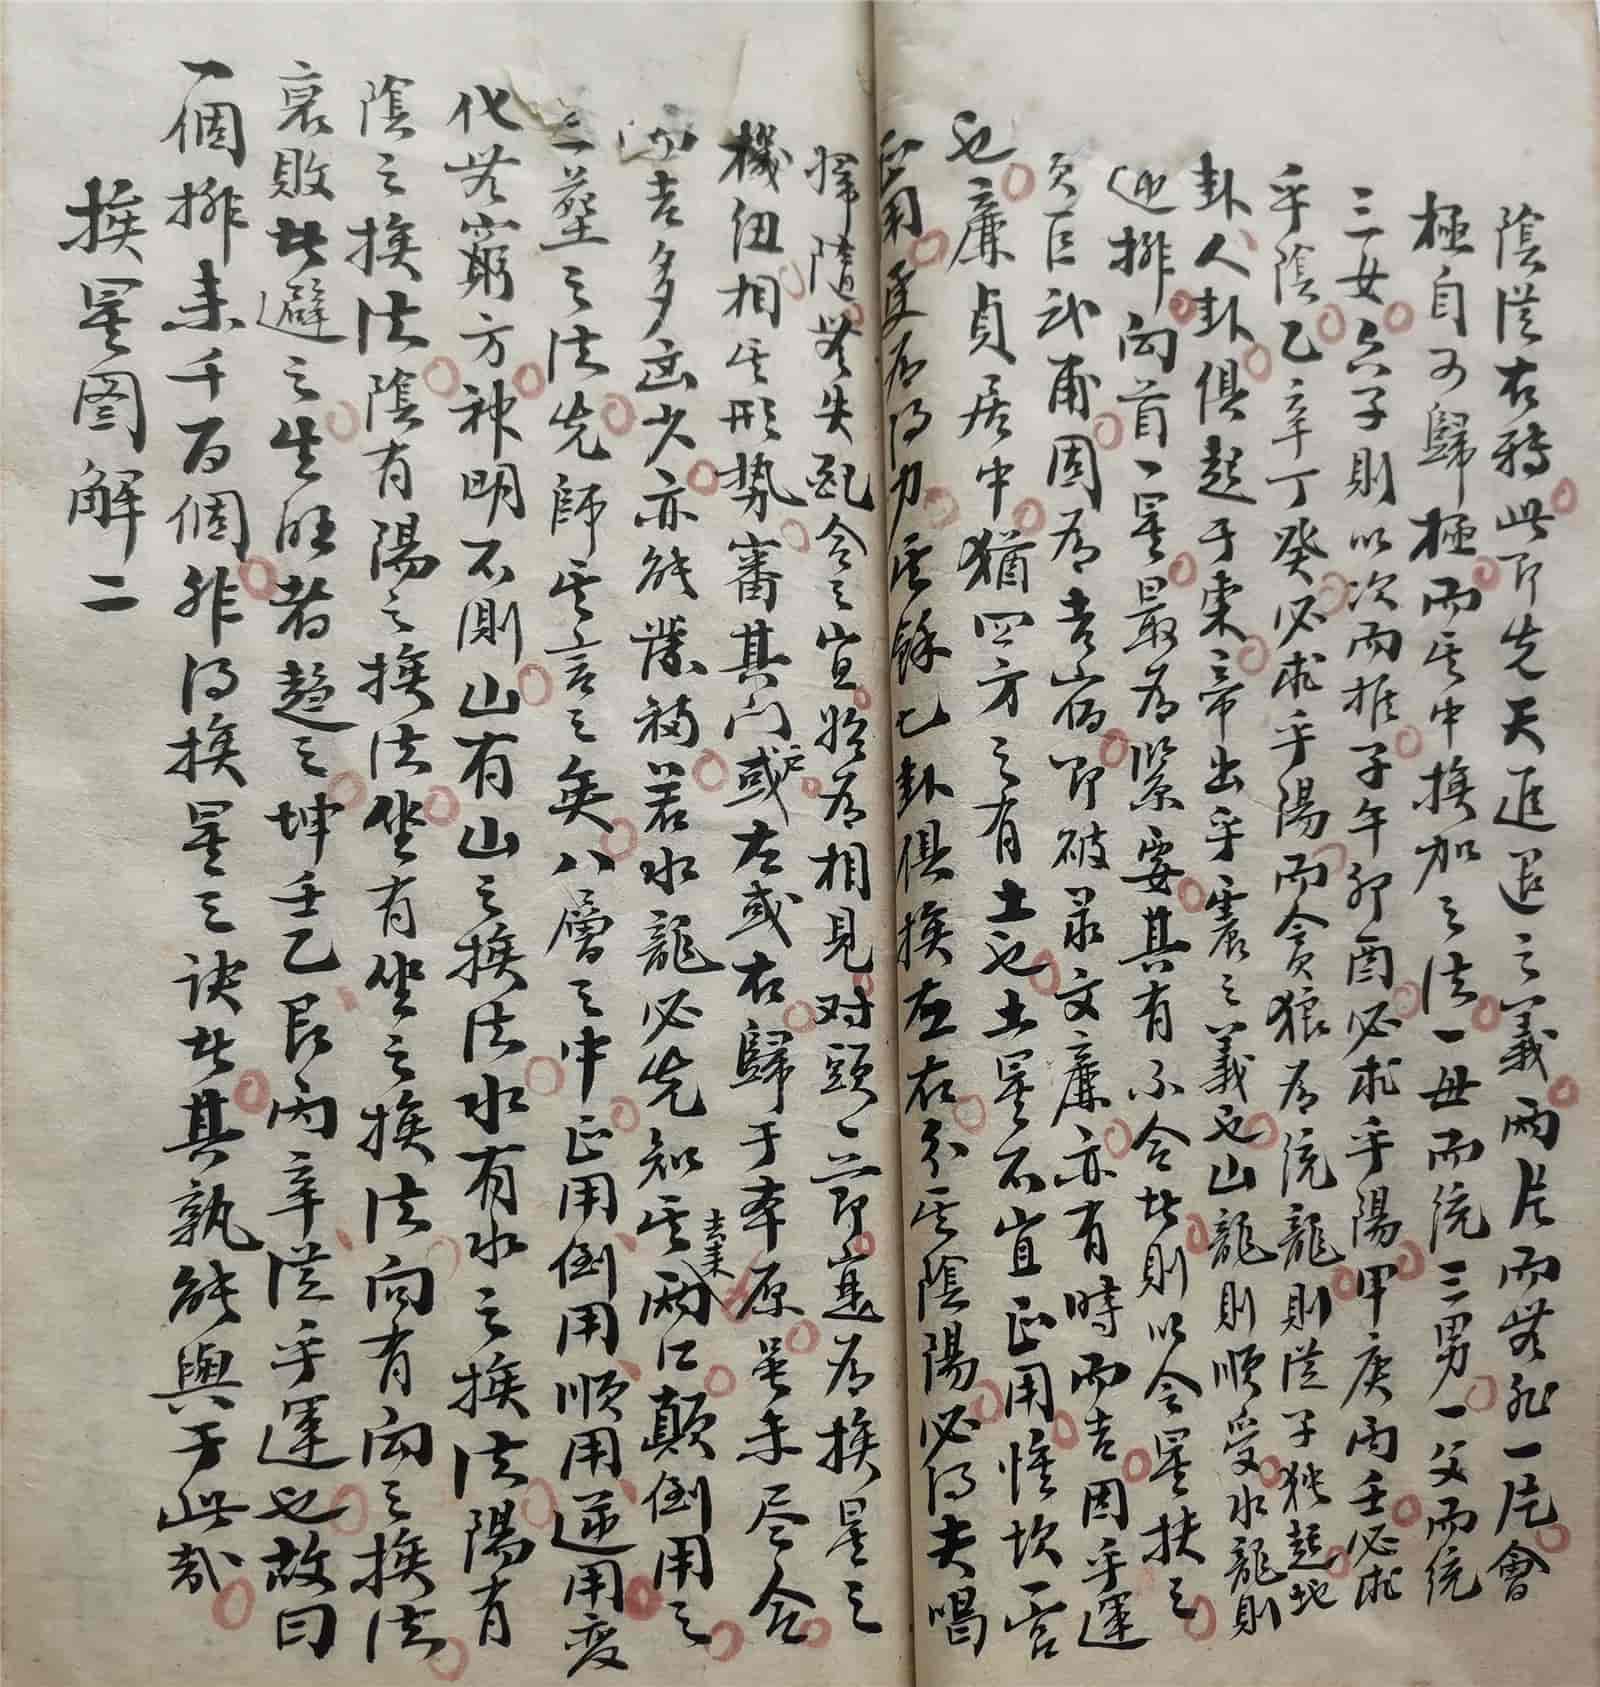 陰從右轉此即先天進退之義兩片而無非一片會
極自可歸極而其中換加之法一母而統三男一父而統
三女六子則以次而推子午卯酉必求乎陽甲庚丙壬必求
乎陰乙辛丁癸必求乎陽而貪狼為統龍則從子独起地
卦人卦俱起于東帝出乎震之義也山龍則順受水龍則
逆排向首一星最為緊要其有不合者則以令星扶之
貪巨武輔固為吉宿即破录文廉亦有時而吉因乎運
也廉貞居中猶四方之有土也土星不宜正用惟坎一宮
用更為得力其餘七卦俱換左右分其陰陽必得夫唱
婦隨無失配合之宜始為相見对頭一節寔為換星之
機紐相其形势審其门户或左或右歸于本原虽未尽合
吉多凶少亦能發福若水龍必先知其去来兩口顛倒用之
三塟之法先師其言之矣八層之中正用倒用順用逆用变
化无窮方神明不測山有山之換法水有水之換法陽有
陰之換法陰有陽之換法坐有坐之換法向有向之換法
衰敗者避之生旺者趋之坤壬乙艮丙辛從乎運也故曰
一個排来千百個非得換星之訣者其孰能與于此哉
換星图解二